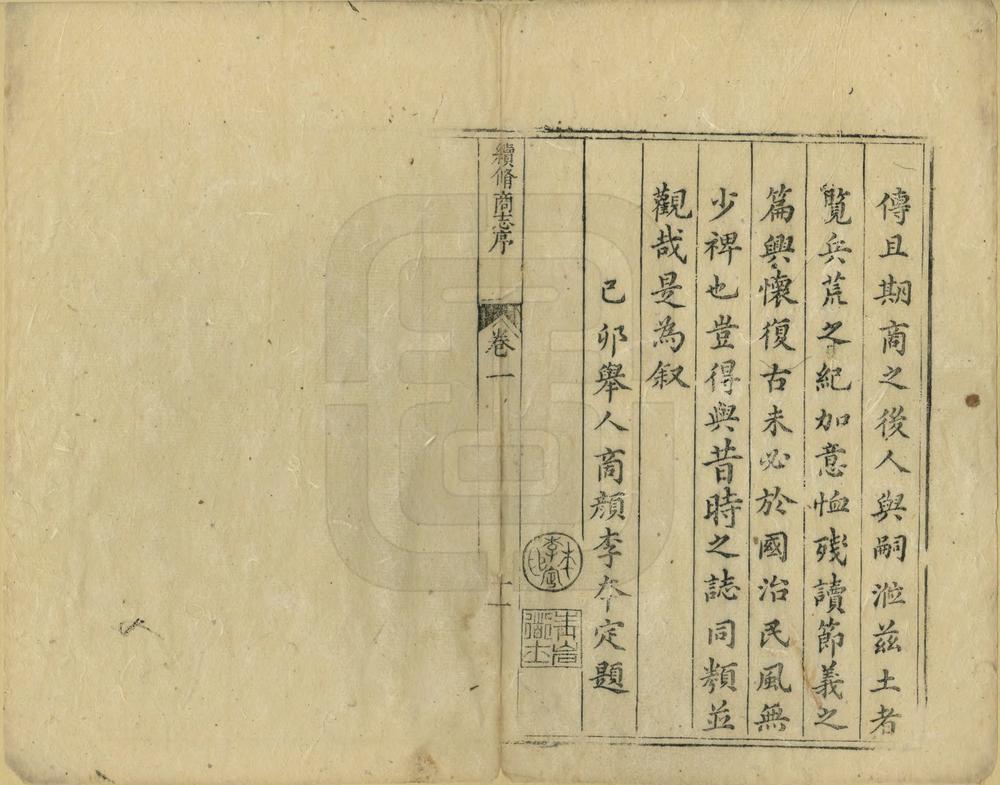 傳且期商之後人與嗣涖茲土者
覽兵荒之紀加意恤殘讀節義之
篇興懷復古未必於國治民風無
少裨也豈得與昔時之誌同類並
觀哉是為叙
己卯舉人商顏李本定題
續脩商志序
卷一
十一